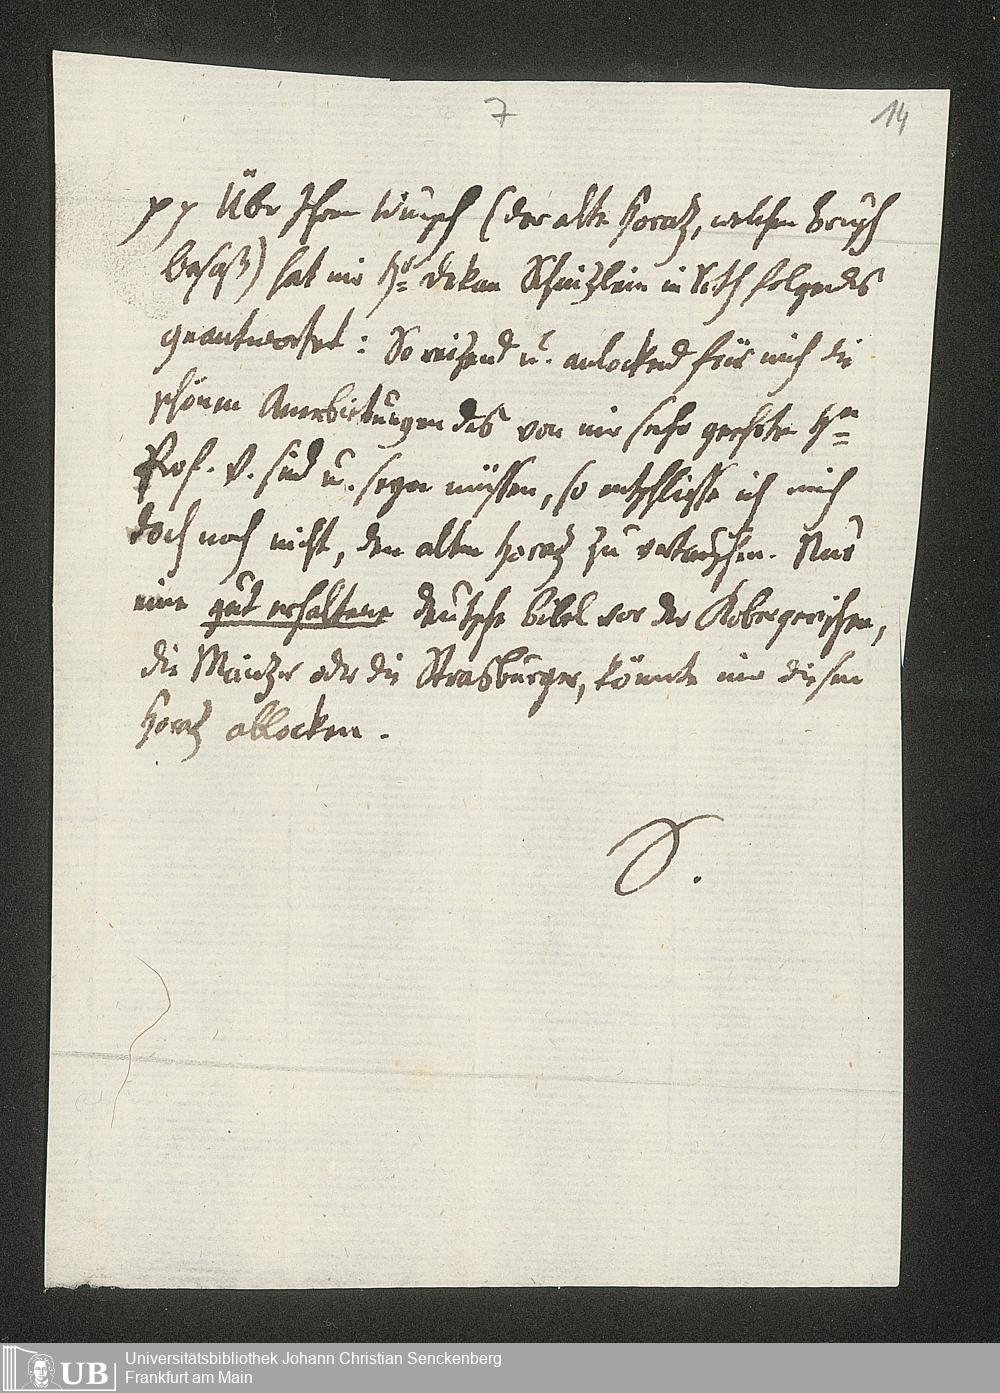 7
14
pp Über Ihren Wunsch (der alte Horatz, welchen Brusch
besaß) hat mir Hr. Dekan Schnizlein in folgendes
geantwortet: So reitzend u. anlockend für mich die
schönen Anerbietungen des von mir sehr geehrten Hn
Prof. V. sind u. seyn müssen, so entschliesse ich mich
doch noch nicht, den alten Horatz zu vertauschen. Nur
eine gut erhaltene deutsche Bibel vor der Kobergerischen,
die Mainzer oder die Strasburger, könnte mir diesen
Horatz ablocken.
S.
UB
Universitätsbibliothek Johann Christian Senckenberg
Frankfurt am Main